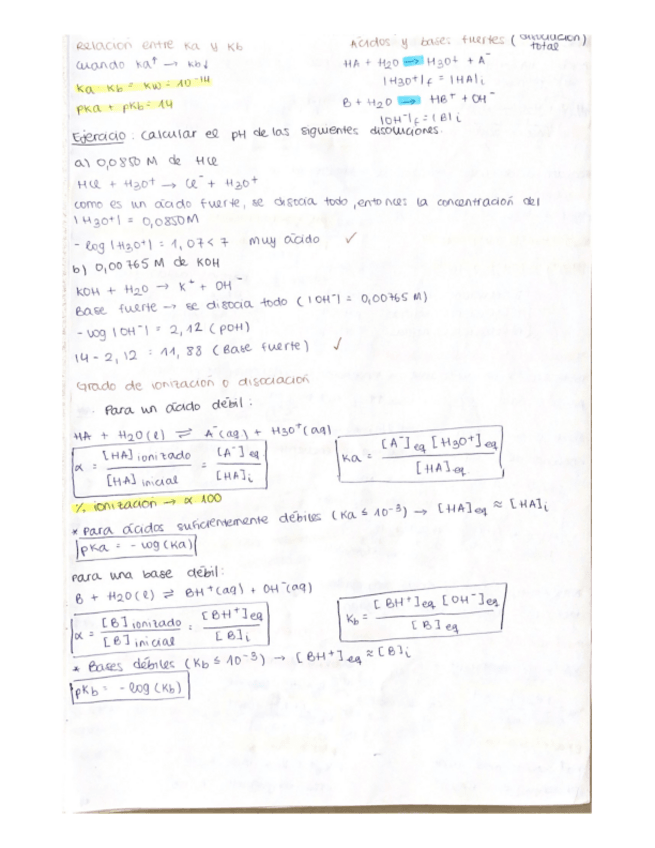 Relación entre Ka y Kb
Cuando Ka↑ → Kb↓
Ka · Kb = Kw = 10⁻¹⁴
pKa + pKb = 14
Ácidos y bases fuertes (disociación total
HA + H2O → H3O+ + A⁻
|H3O+|f = |HA|i
B + H2O → HB+ + OH⁻
|OH⁻|f = |B|i
Ejercicio: calcular el pH de las siguientes disoluciones.
a) 0,0850 M de HCl
HCl + H3O+ → Cl⁻ + H3O+
como es un ácido fuerte, se disocia todo, entonces la concentración del
|H3O+| = 0,0850M
- log |H3O+| = 1,07 < 7 muy ácido ✓
b) 0,00765 M de KOH
KOH + H2O → K+ + OH⁻
Base fuerte → se disocia todo (|OH⁻| = 0,00765 M)
- log |OH⁻| = 2,12 (pOH)
14 - 2,12 = 11,88 (Base fuerte) ✓
Grado de ionización o disociación
· Para un ácido débil:
HA + H2O(l) ⇌ A⁻(aq) + H3O+(aq)
α = [HA] ionizado / [HA] inicial = [A⁻]eq / [HA]i
Ka = [A⁻]eq [H3O+]eq / [HA]eq
% ionización → α 100
* Para ácidos suficientemente débiles (Ka ≤ 10⁻³) → [HA]eq ≈ [HA]i
pKa = - log(Ka)
Para una base débil:
B + H2O(l) ⇌ BH+(aq) + OH⁻(aq)
α = [B] ionizado / [B] inicial = [BH+]eq / [B]i
Kb = [BH+]eq [OH⁻]eq / [B]eq
* Bases débiles (Kb ≤ 10⁻³) → [BH+]eq ≈ [B]i
pKb = - log(Kb)